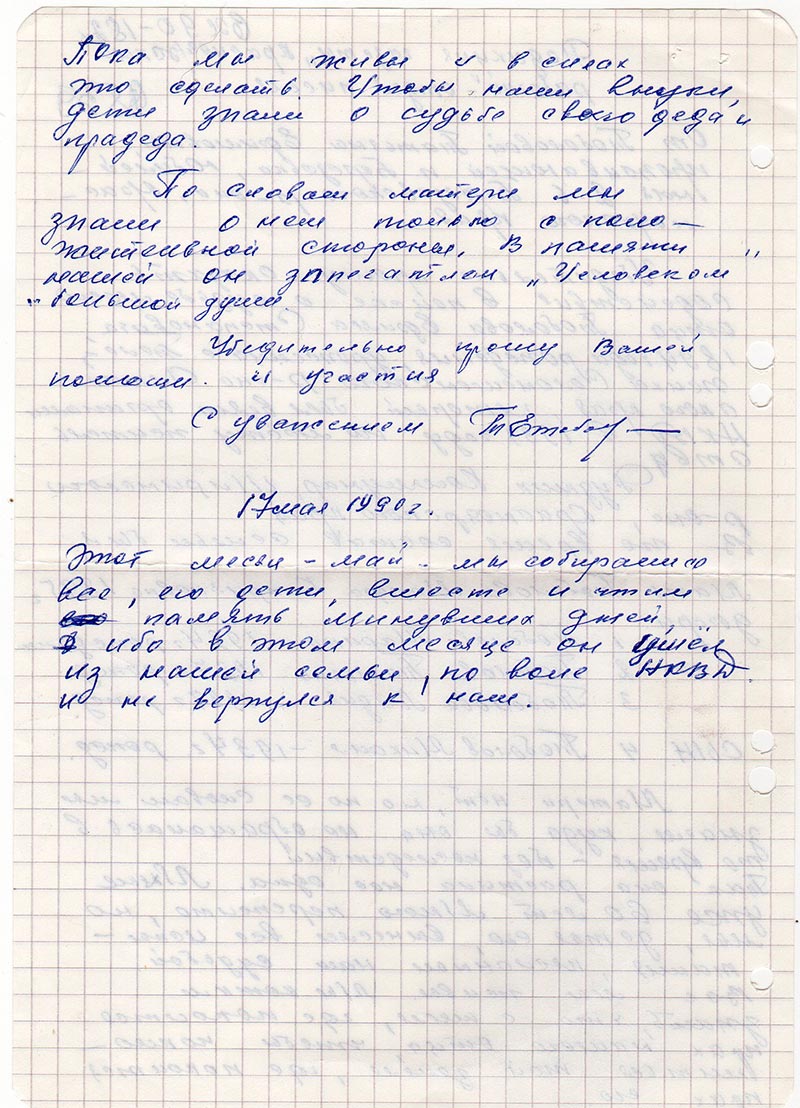 Пока мы живы и в силах
это сделать. Чтобы наши внуки,
дети знали о судьбе своего деда и
прадеда.
По словам матери мы
знали о нем только с поло-
жительной стороны. В памяти
нашей он запечатлен „Человеком
большой души"
Убедительно прошу Вашей
помощи. и участия
С уважением
17 мая 1990 г.
Этот месяц - май - мы собираемся
все, его дети, вместе и чтим
память минувших дней,
ибо в этом месяце он ушёл
из нашей семьи, по воле НКВД.
и не вернулся к нам.